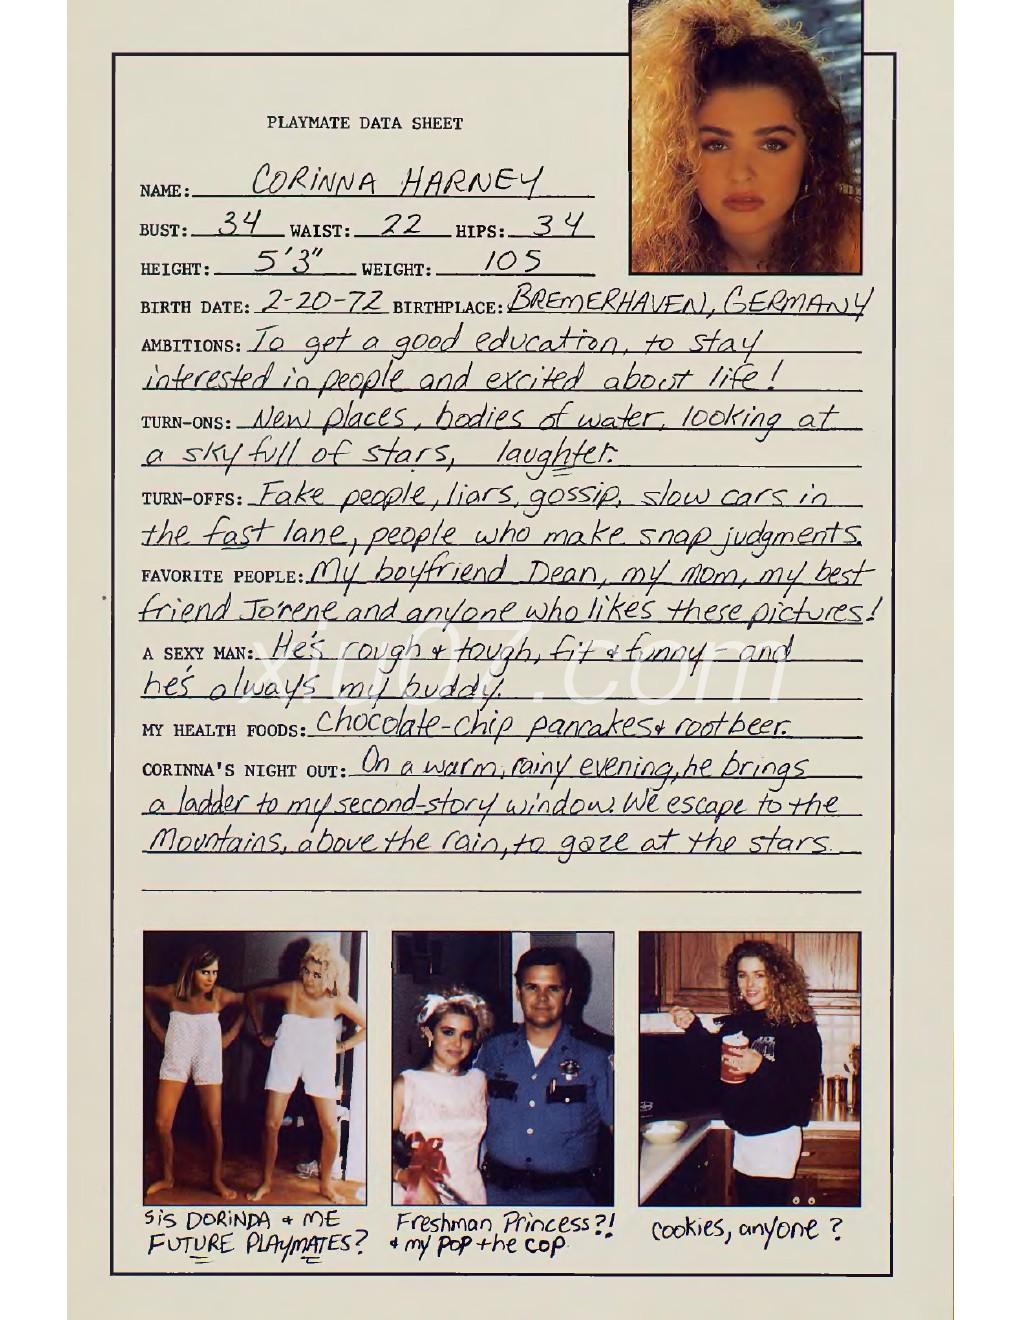 PLAYMATE DATA SHEET
NAME: CORINNA HARNEY
BUST: 34 WAIST: 22 HIPS: 34
HEIGHT: 5'3" WEIGHT: 105
BIRTH DATE: 2-20-72 BIRTHPLACE: BREMERHAVEN, GERMANY
AMBITIONS: To get a good education, to stay
interested in people and excited about life!
TURN-ONS: New places, bodies of water, looking at
a sky full of stars, laughter.
TURN-OFFS: Fake people, liars, gossip, slow cars in
the fast lane, people who make snap judgments.
FAVORITE PEOPLE: My boyfriend Dean, my mom, my best
friend Jo'rene and anyone who likes these pictures!
A SEXY MAN: He's rough & tough, fit & funny - and
he's always my buddy.
xiu07.com
MY HEALTH FOODS: Chocolate-chip pancakes & rootbeer.
CORINNA'S NIGHT OUT: On a warm, rainy evening, he brings
a ladder to my second-story window. We escape to the
Mountains, above the rain, to gaze at the stars.
SIS DORINDA & ME
FUTURE PLAYMATES?
Freshman Princess?!
& my POP the COP.
cookies, anyone?